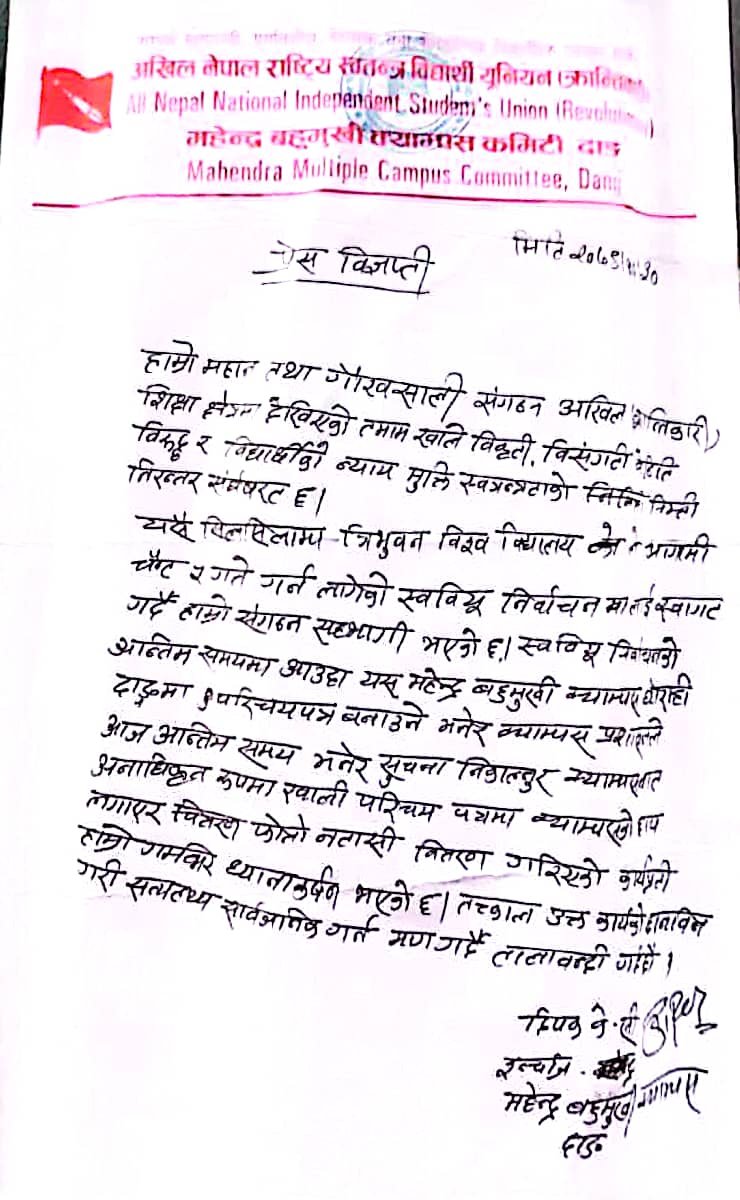 अखिल नेपाल राष्ट्रिय स्वतन्त्र विद्यार्थी युनियन (क्रान्तिका
All Nepal National Independent Student's Union (Revolution
महेन्द्र बहुमुखी क्याम्पस कमिटी दाङ
Mahendra Multiple Campus Committee, Dang
मिति २०७९।११।३०
प्रेस विज्ञप्ती
हाम्रो महान तथा गौरवसाली संगठन अखिल (क्रान्तिकारी)
शिक्षा क्षेत्रमा देखिएको तमाम खाले विकृती, विसंगटी
विरूद्ध र विद्यार्थीको न्याय मुक्ति स्वत्रन्त्रताको निम्ती
निरन्तर संर्घषरत छ।
यसै सिलसिलाम्प त्रिभुवन विश्व विद्यालय ले आगामी
चैट ५ गते गर्न लागेको स्ववियू निर्वाचन मालाई स्वागट
गर्दै हाम्रो संगठन सहभागी भएको छ। स्ववियू निर्वाचनको
अन्तिम समयमा आउदा यस महेन्द्र बहुमुखी क्याम्पस घोराही
दाङमा परिचयपत्र बनाउने भनेर क्याम्पस प्रशासनले
आज अन्तिम समय भनेर सुचना निकाल्नुर क्याम्पसबाट
अनाधिकृत रूपमा खाली परिचय पत्रमा क्याम्पसको छाप
लगाएर फोटो नटासी वितरण गरिएको कार्यप्रती
हाम्रो गमविर ध्यानाकर्षण भएको छ। तत्काल उक्त कार्यको छानविन
गरी सत्यतथ्य सार्वजनिक गर्न माग गर्दै तालावन्दी गर्दछौ।
दिपक के.सी
इन्चार्ज
महेन्द्र बहुमुखी क्याम्पस
दाङ